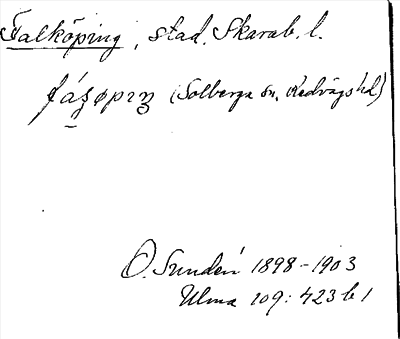 Falköping, stad. Skarab. l.
(Solberga sn, Redvägs hd)
O. Sundén 1898-1903
Ulma 109:423 b 1